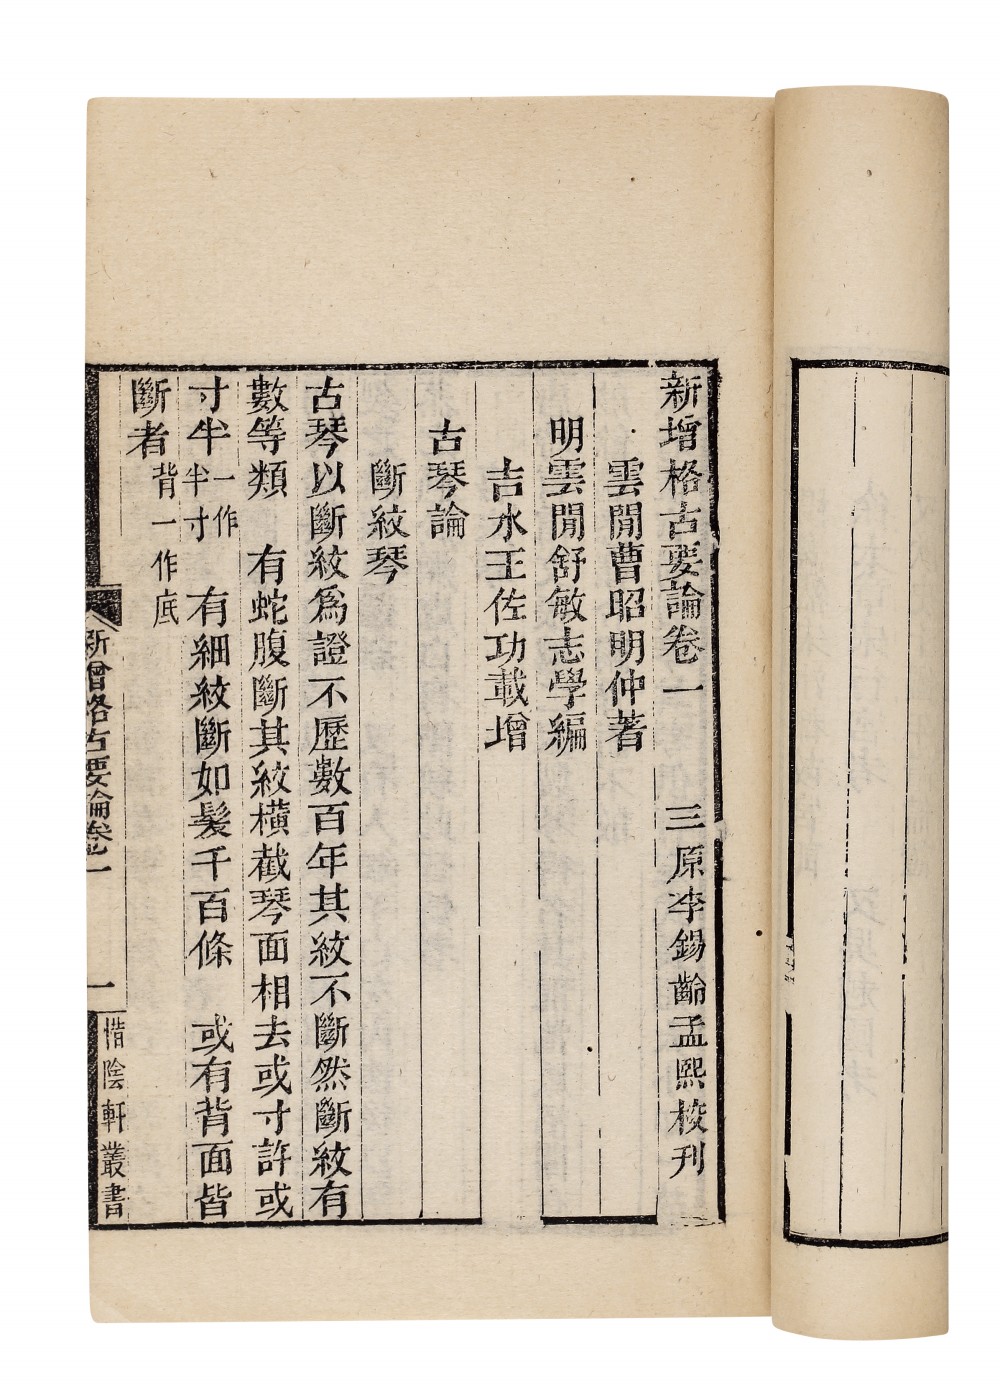 新增格古要論卷一　三原李錫齡孟熙校刊
雲閒曹昭明仲著
明雲閒舒敏志學編
吉水王佐功載增
古琴論
斷紋琴
古琴以斷紋爲證不歷數百年其紋不斷然斷紋有
數等類　有蛇腹斷其紋橫截琴面相去或寸許或
寸半一作半寸　有細紋斷如髮千百條　或有背面皆
斷者背一作底
新增格古要論卷一　一　惜陰軒叢書